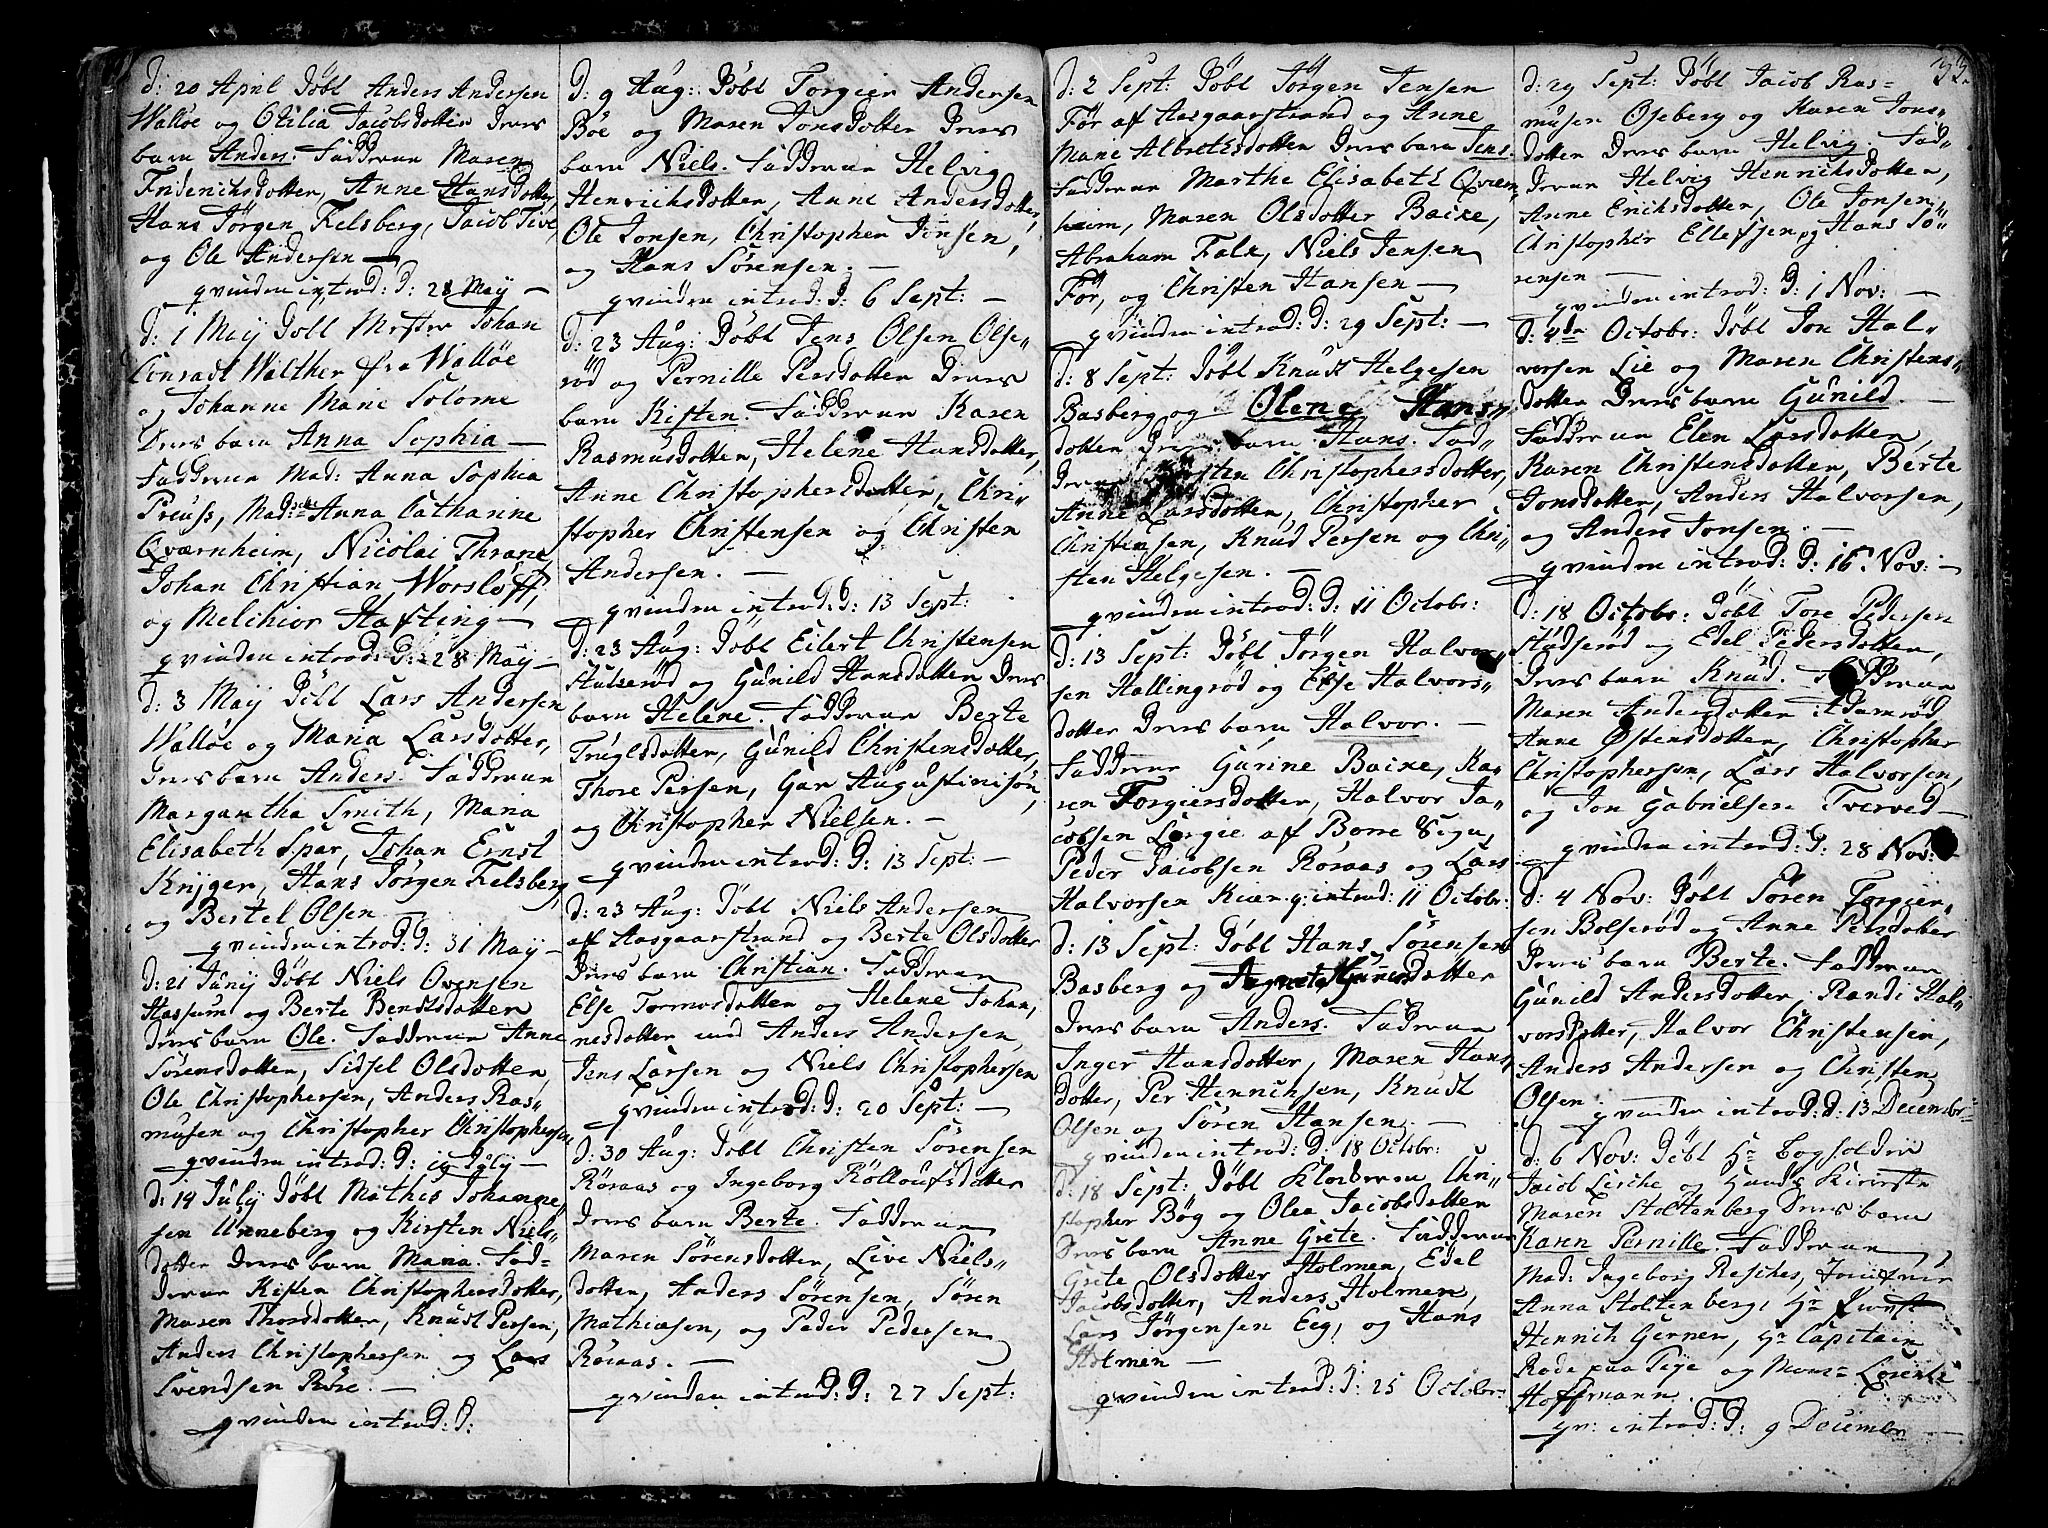 d: 20 April döbt Anders Andersen
Walløe og Cicilia Jacobsdotter deres
barn Anders. Fadderne Maren
Friderichsdotter, Anne Hansdotter,
Hans Jørgen Felsberg, Jacob Five,
og Ole Andersen —
qvinden introd: d: 28 Maÿ —
d: 1 Maÿ döbt Mester Johan
Conradt Walther fra Walløe
og Johanne Marie Solome
deres barn Anna Sophia —
Fadderne Mad: Anna Sophia
Preuss, Mad: Anna Catharine
Qværnheim, Nicolai Thrane,
Johan Christian Worsløff,
og Melchior Hafting —
qvinden introd: d: 28 Maÿ —
d: 3 Maÿ döbt Lars Andersen
Walløe og Maria Larsdotter,
deres barn Anders. Fadderne
Margaretha Smith, Maria
Elisabeth Spar, Johan Ernst
Krÿger, Hans Jørgen Felsberg,
og Bertel Olsen
qvinden introd: d: 31 Maÿ —
d: 21 Junÿ döbt Niels Ovensen
Hassum og Berte Bendtsdotter
deres barn Ole. Fadderne Anne
Sörensdotter, Sidsel Olsdotter,
Ole Christophersen, Anders Ras„
musen og Christopher Christophersen
qvinden introd: d: 19 Julÿ —
d: 14 Julÿ döbt Mathis Johanne„
sen Unneberg og Kirsten Niels„
dotter deres barn Maria. Fad=
derne Kisten Christophersdotter,
Maren Thorsdotter, Knudt Persen,
Anders Christophersen og Lars
Svendsen Röre. —
qvinden introd: d:
d: 9 Aug: döbt Torgier Andersen
Böe og Maren Jonsdotter deres
barn Niels. Fadderne Helvig
Henrichsdotter, Anne Andersdotter,
Ole Jonsen, Christopher Jensen,
og Hans Sörensen. —
qvinden introd: d: 6 Sept: —
d: 23 Aug: döbt Jens Olsen Olse„
röd og Pernille Persdotter deres
barn Kisten. Fadderne Karen
Rasmusdotter, Helene Hansdotter,
Anne Christophersdotter, Chri„
stopher Christensen og Christen
Andersen. —
qvinden introd: d: 13 Sept:
d: 23 Aug: döbt Eilert Christensen
Stutseröd og Gunild Hansdotter deres
barn Helene. Fadderne Berte
Truglsdotter, Gunild Christensdotter,
Thore Persen, Gar Augustinisön,
og Christopher Nielsen. —
qvinden introd: d: 13 Sept: —
d: 23 Aug: döbt Niels Andersen
af Aasgaarstrand og Berte Olsdotter
deres barn Christian. Fadderne
Else Tormosdotter og Helene Johan„
nesdotter med Anders Andersen,
Jens Larsen og Niels Christophersen
qvinden introd: d: 20 Sept: —
d: 30 Aug: döbt Christen Sörensen
Röraas og Ingeborg Röllöufsdotter
deres barn Berte. Fadderne
Maren Sörensdotter, Live Niels„
dotter, Anders Sörensen, Sören
Mathiasen, og Peder Pedersen
Röraas. —
qvinden introd: d: 27 Sept:
d: 2 Sept: döbt Jörgen Jensen
För af Aasgaarstrand og Anne
Marie Albretsdotter deres barn Jens.
Fadderne Marthe Elisabeth Qvern„
heim, Maren Olsdotter Baixe,
Abraham Falk, Niels Jensen
För, og Christen Hansen —
qvinden introd: d: 29 Sept: —
d: 8 Sept: döbt Knudt Helgesen
Basberg og Olene Hans„
dotter deres barn Hans. Fad„
derne Kirsten Christophersdotter,
Anne Larsdotter, Christopher
Christensen, Knud Persen og Chri„
sten Helgesen. —
qvinden introd: d: 11 Octobr:
d: 13 Sept: döbt Jörgen Halvor„
sen Hallingröd og Else Halvors„
dotter deres barn Halvor. —
Fadderne Gurine Baixe, Ka„
ren Torgiersdotter, Halvor Ja„
cobsen Lörgie af Borre Sogn,
Peder Jacobsen Röraas og Lars
Halvorsen Kiær. q: introd: 11 Octobr:
d: 13 Sept: döbt Hans Sörensen
Basberg og Agnete Gunersdotter
deres barn Anders. Fadderne
Inger Hansdotter, Maren Hans„
dotter, Per Henrichsen, Knudt
Olsen og Sören Hansen. —
qvinden introd: d: 18 Octobr:
d: 18 Sept: döbt Klockeren Chri„
stopher Bög og Olea Jacobsdotter
deres barn Anne Grete. Fadderne
Grete Olsdotter Holmen, Edel
Jacobsdotter, Anders Holmen,
Lars Jörgensen Eeg, og Hans
Holmen —
qvinden introd: d: 25 Octobr:
33.
d: 29 Sept: döbt Jacob Ras=
musen Oseberg og Karen Jons„
dotter deres barn Helvig. Fad„
derne Helvig Henrichsdotter,
Anne Erichsdotter, Ole Jonsen,
Christopher Ellefsen og Hans Sö„
rensen —
qvinden introd: d: 1 Nov: —
d: 4de Octobr: döbt Jon Hal„
vorsen Lie og Maren Christens„
dotter deres barn Gunild. —
Fadderne Elen Larsdotter,
Karen Christensdotter, Berte
Jonsdotter, Anders Halvorsen,
og Anders Jonsen. —
qvinden introd: d: 15 Nov: —
d: 18 Octobr: döbt Tore Pedersen
Studseröd og Edel Pedersdotter,
deres barn Knud. Fadderne
Maren Andersdotter Adamröd
Anne Östensdotter, Christopher
Christophersen, Lars Halvorsen,
og Jon Gabrielsen Tverved —
qvinden introd: d: 28 Nov: —
d: 4 Nov: döbt Sören Torgier„
sen Bolseröd og Anne Persdotter
deres barn Berte. Fadderne
Gunild Andersdotter, Randi Hal„
vorsdotter, Halvor Christensen,
Anders Andersen og Christen
Olsen. qvinden introd: d: 13 Decembr:
d: 6 Nov: döbt Hr Bogholder
Jacob Lerche og Hands Kiereste
Maren Stoltenberg deres barn
Karen Pernille. Fadderne
Mad: Ingeborg Resches, Jomfrue
Anna Stoltenberg, Hr
Henrich Gerner, Hr Capitain
Rode paa Teje og Mons= Lorentz
Hoffmann.
qv: introd: d: 9 Decembr